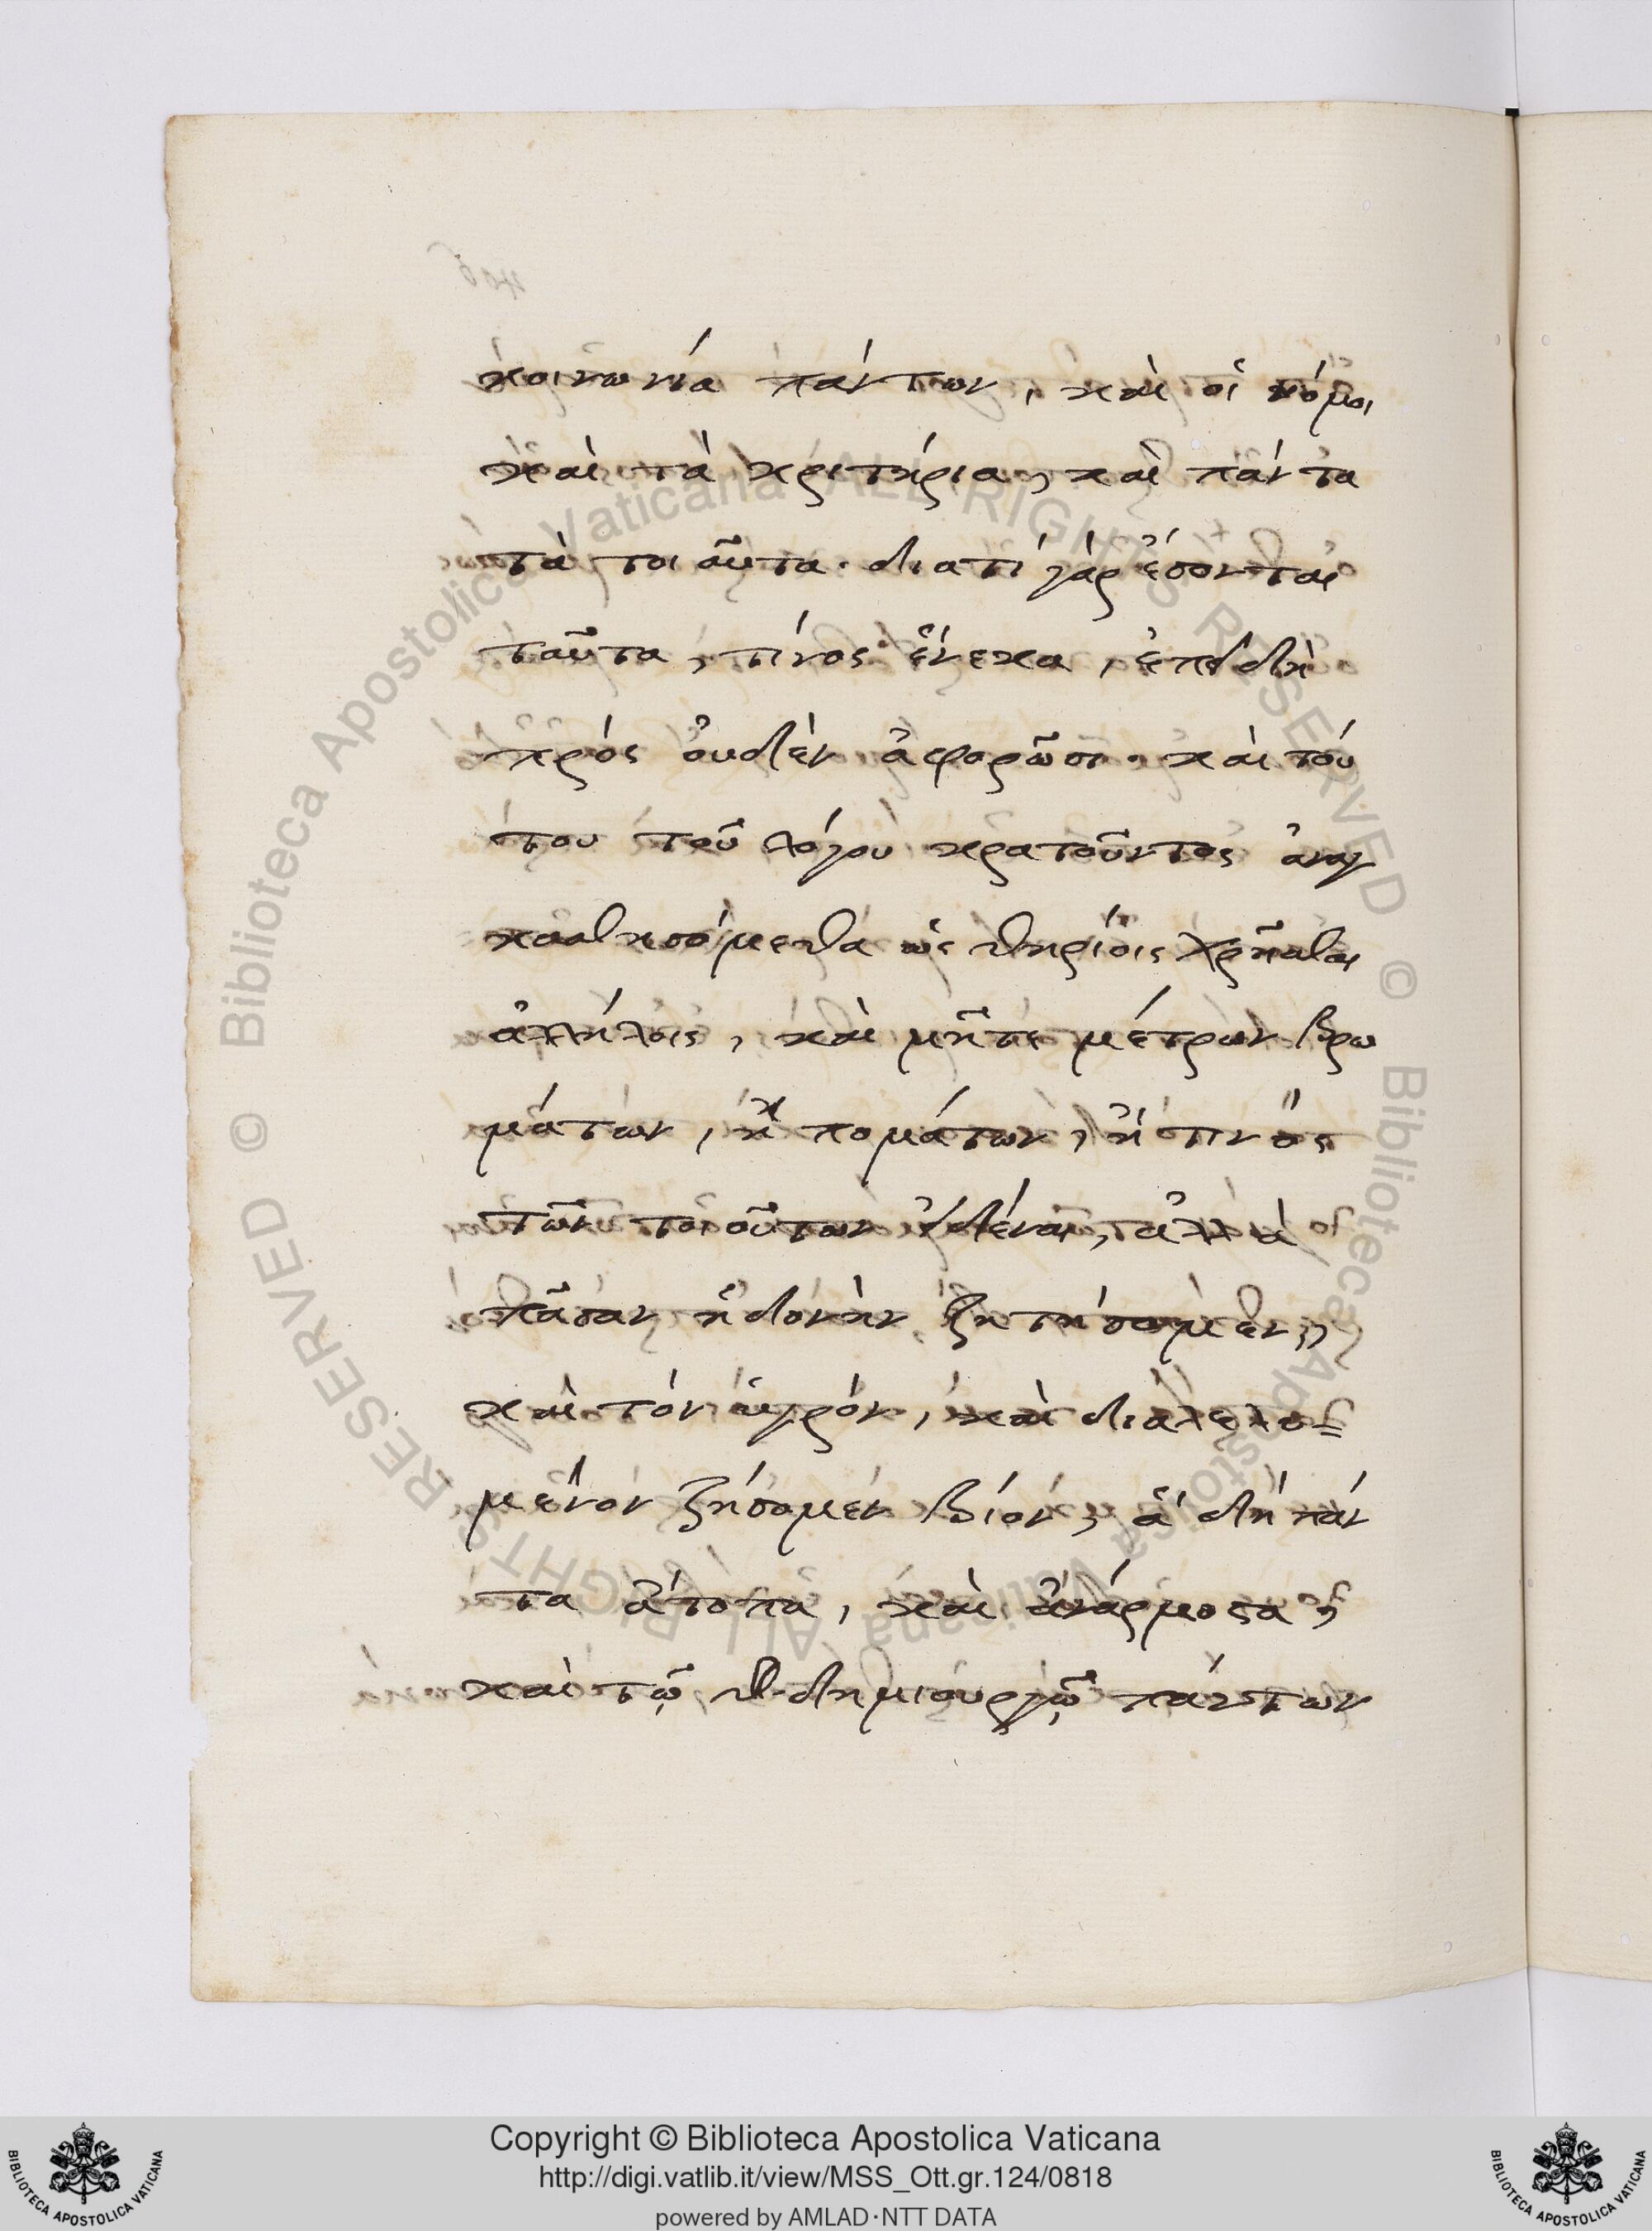 κοινωνία πάντων, καὶ οἱ νόμοι
καὶ τὰ κριτήρια, καὶ πάντα
τὰ τοιαῦτα. διατί γὰρ ἔσονται
ταῦτα, τίνος ἕνεκα, ἐπειδὴ
πρὸς οὐδὲν ἀφορῶσι. καὶ τού
του τοῦ λόγου κρατοῦντος ἀναγ
κασθησόμεθα ὡς θηρίοις χρῆσθαι
ἀλλήλοις, καὶ μῆτε μέτρων βρω
μάτων, ἢ πομάτων, ἢ τινὸς
τῶν τοιούτων εἰδέναι, ἀλλὰ
πᾶσαν ἡδονὴν ζητήσομεν,
καὶ τὸν ὑγρόν, καὶ διαλελυ=
μένον ζήσομεν βίον, ἃ δὴ πάν
τα ἄτοπα, καὶ ἀνάρμοστα,
καὶ τῷ δημιουργῷ πάντων
Copyright © Biblioteca Apostolica Vaticana
http://digi.vatlib.it/view/MSS_Ott.gr.124/0818
powered by AMLAD·NTT DATA
BIBLIOTECA APOSTOLICA VATICANA
BIBLIOTECA APOSTOLICA VATICANA
© Biblioteca Apostolica Vaticana ALL RIGHTS RESERVED © Biblioteca Apostolica Vaticana ALL RIGHTS RESERVED